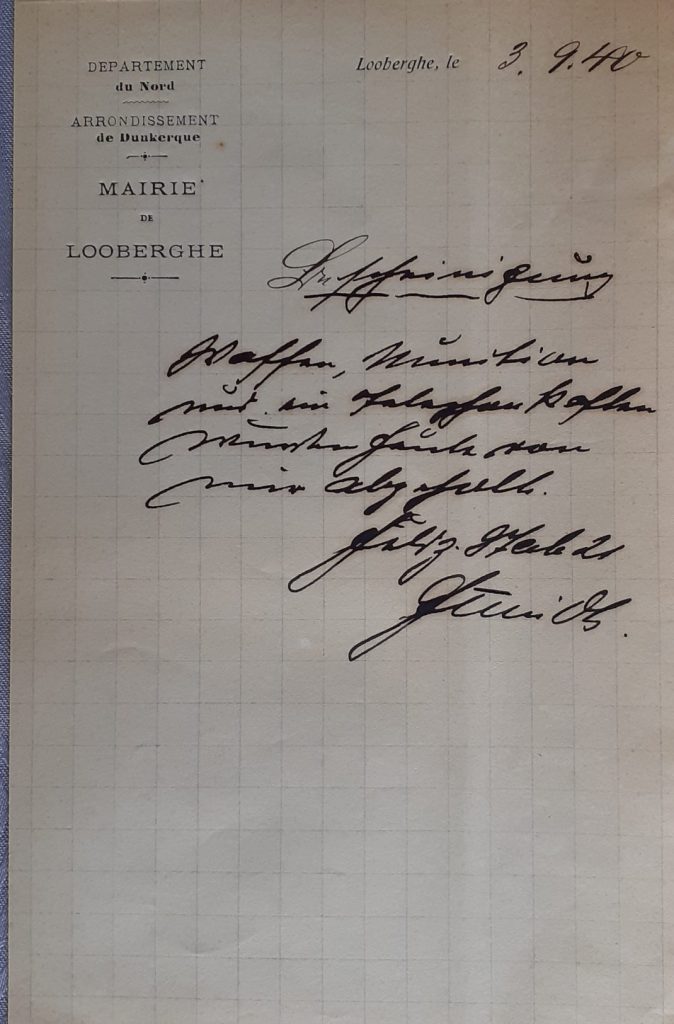 DEPARTEMENT
du Nord
ARRONDISSEMENT
de Dunkerque
MAIRIE
DE
LOOBERGHE
Looberghe, le 3. 9. 40
Bescheinigung
Waffen, Munition
und ein Telephonkasten
wurden heute von
mir abgeholt.